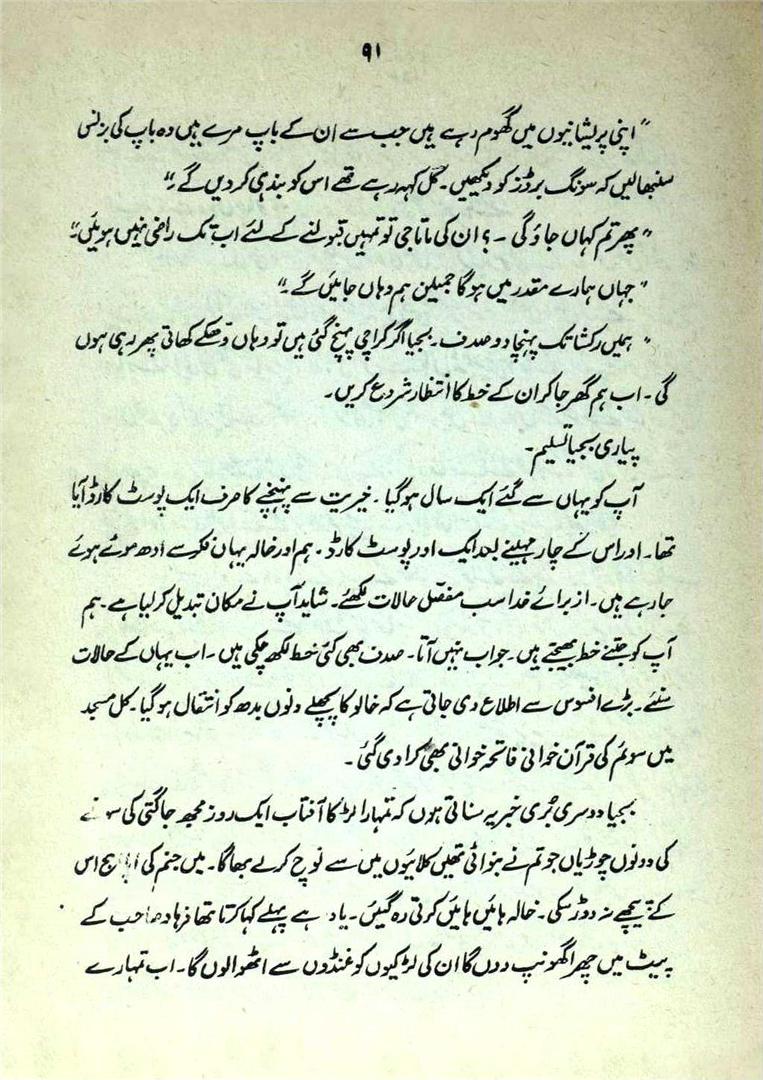 ۹۱
"اپنی پریشانیوں میں گھوم رہے ہیں جب سے ان کے باپ مرے ہیں وہ باپ کی بزنس
سنبھالیں کہ سونگ برڈز کو دیکھیں۔ گل کہہ رہے تھے اس کو بند ہی کر دیں گے۔"
"پھر تم کہاں جاؤ گی۔؟ ان کی ماتا جی تو تمہیں قبولنے کے لئے اب تک راضی نہیں ہوئیں۔"
"جہاں ہمارے مقدر میں ہو گا جمیلن ہم وہاں جائیں گے۔"
"ہمیں رکشا تک پہنچا دو صدف۔ بجیا اگر کراچی پہنچ گئی ہیں تو وہاں دھکے کھاتی پھر رہی ہوں
گی۔ اب ہم گھر جا کر ان کے خط کا انتظار شروع کریں۔
پیاری بجیا تسلیم۔
آپ کو یہاں سے گئے ایک سال ہو گیا۔ خیریت سے پہنچنے کا صرف ایک پوسٹ کارڈ آیا
تھا۔ اور اس کے چار مہینے بعد ایک اور پوسٹ کارڈ۔ ہم اور خالہ یہاں فکر سے ادھ موئے ہوئے
جا رہے ہیں۔ از برائے خدا سب مفصل حالات لکھئے۔ شاید آپ نے مکان تبدیل کر لیا ہے۔ ہم
آپ کو جتنے خط بھیجتے ہیں۔ جواب نہیں آتا۔ صدف بھی کئی خط لکھ چکی ہیں۔ اب یہاں کے حالات
سنئے۔ بڑے افسوس سے اطلاع دی جاتی ہے کہ خالو کا پچھلے دنوں بدھ کو انتقال ہو گیا۔ کل مسجد
میں سوئم کی قرآن خوانی فاتحہ خوانی بھی کرا دی گئی۔
بجیا دوسری بُری خبر یہ سناتی ہوں کہ تمہارا لڑکا آفتاب ایک روز مجھ جاگتی کی سونے
کی دونوں چوڑیاں جو تم نے بنوائی تھیں کلائیوں میں سے نوچ کر لے بھاگا۔ میں جنم کی اپاہج اس
کے پیچھے نہ دوڑ سکی۔ خالہ ہائیں ہائیں کرتی رہ گئیں۔ یاد ہے پہلے کہا کرتا تھا فرہاد صاحب کے
پیٹ میں چھرا گھونپ دوں گا ان کی لڑکیوں کو غنڈوں سے اٹھوا لوں گا۔ اب تمہارے